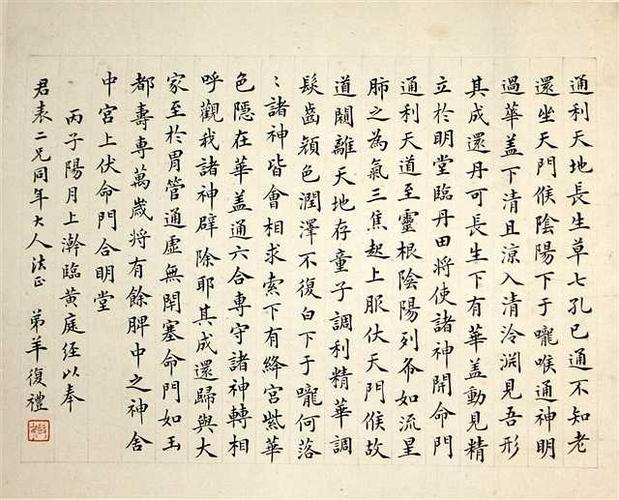 通利天地長生草七孔已通不知老
還坐天門候陰陽下于嚨喉通神明
過華盖下清且涼入清泠淵見吾形
其成還丹可長生下有華盖動見精
立於明堂臨丹田將使諸神開命門
通利天道至靈根陰陽列布如流星
肺之為氣三焦起上服伏天門候故
道闚離天地存童子調利精華調
髮齒顏色潤澤不復白下于嚨何落
〻諸神皆會相求索下有絳宮紫華
色隱在華盖通六合專守諸神轉相
呼觀我諸神辟除耶其成還歸與大
家至於胃管通虛無閉塞命門如玉
都壽專萬歲將有餘脾中之神舍
中宮上伏命門合明堂
丙子陽月上澣臨黃庭經以奉
君表二兄同年大人法正 弟羊復禮